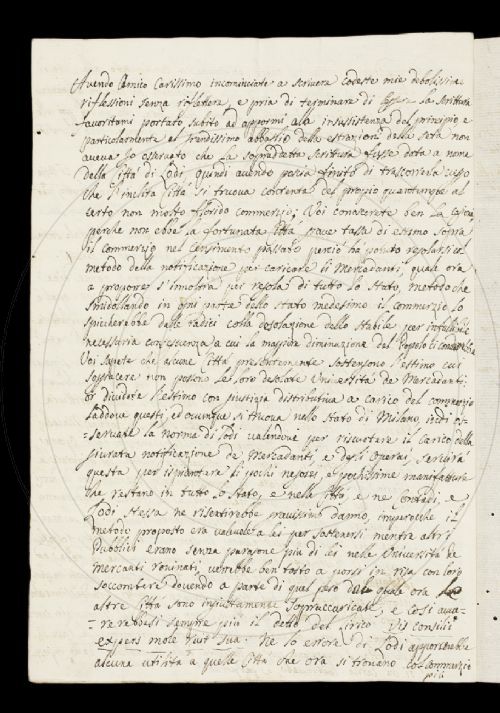 Avendo Amico Carissimo incominciate a scrivere codeste mie debolissime
riflessioni senza riflettere, e pria di terminare di leggere la scrittura
favoritami portato subito ad appormi alla insussistenza del principio e
particolarmente al grandissimo abbaglio della estrazione della seta non
aveva io osservato che la sopradetta scrittura fosse data a nome
della Città di Lodi. Quindi avendo poscia finito di trascorrerla
che l'inclita Città si truova contenta del proprio quantunque al
certo non molto florido commerzio, Voi conoscerete ben la cagione
perché non ebbe la fortunata Città grave tassa di estimo sopra
il commerzio nel Censimento passato perciò ha potuto regolarsi col
metodo della notificazione per caricare li Mercadanti, quale ora
a proporre s'innoltra per regola di tutto lo Stato, metodo che
smidollando in ogni parte dello Stato medesimo il commerzio lo
spicherebbe dalle radici colla desolazione dello Stabile per infallibile
necessaria conseguenza a cui la maggiore diminuzione del Popolo
Voi sapete che alcune Città presentemente sostengono l'estimo cui
soggiacere non possono le loro desolate Università de Mercadanti:
or dividere l'estimo con giustizia distributiva a carico del commerzio
laddove questi, ed ovunque si truova nello Stato di Milano, indi os-
-servate la norma di Lodi valendone per riscuotere il carico della
giurata notificazione de Mercadanti e degli Operai servirà
questa per ispiantare li pochi negozi, e pochissime manifatture
che restano in tutto lo Stato, e nella Città e ne Contadi, e
Lodi stessa ne risentirebbe gravissimo danno, imperocché il
metodo proposto era valevole a lei per sostenersi mentre altri
Pubblici erano senza paragone più di lei nelle Università de
mercanti rovinati, verrebbe ben tosto a porsi in riga con loro
soccombere dovendo a parte di quel peso dal quale ora
altre Città sono ingiustamente sopraccaricate, e così avve-
-rerebbesi sempre più il detto del Lirico Vis consilii
expers mole ruit sua. Ne lo errore di Lodi apporterebbe
alcuna utilità a quelle Città che ora si trovano col Commerzio
più